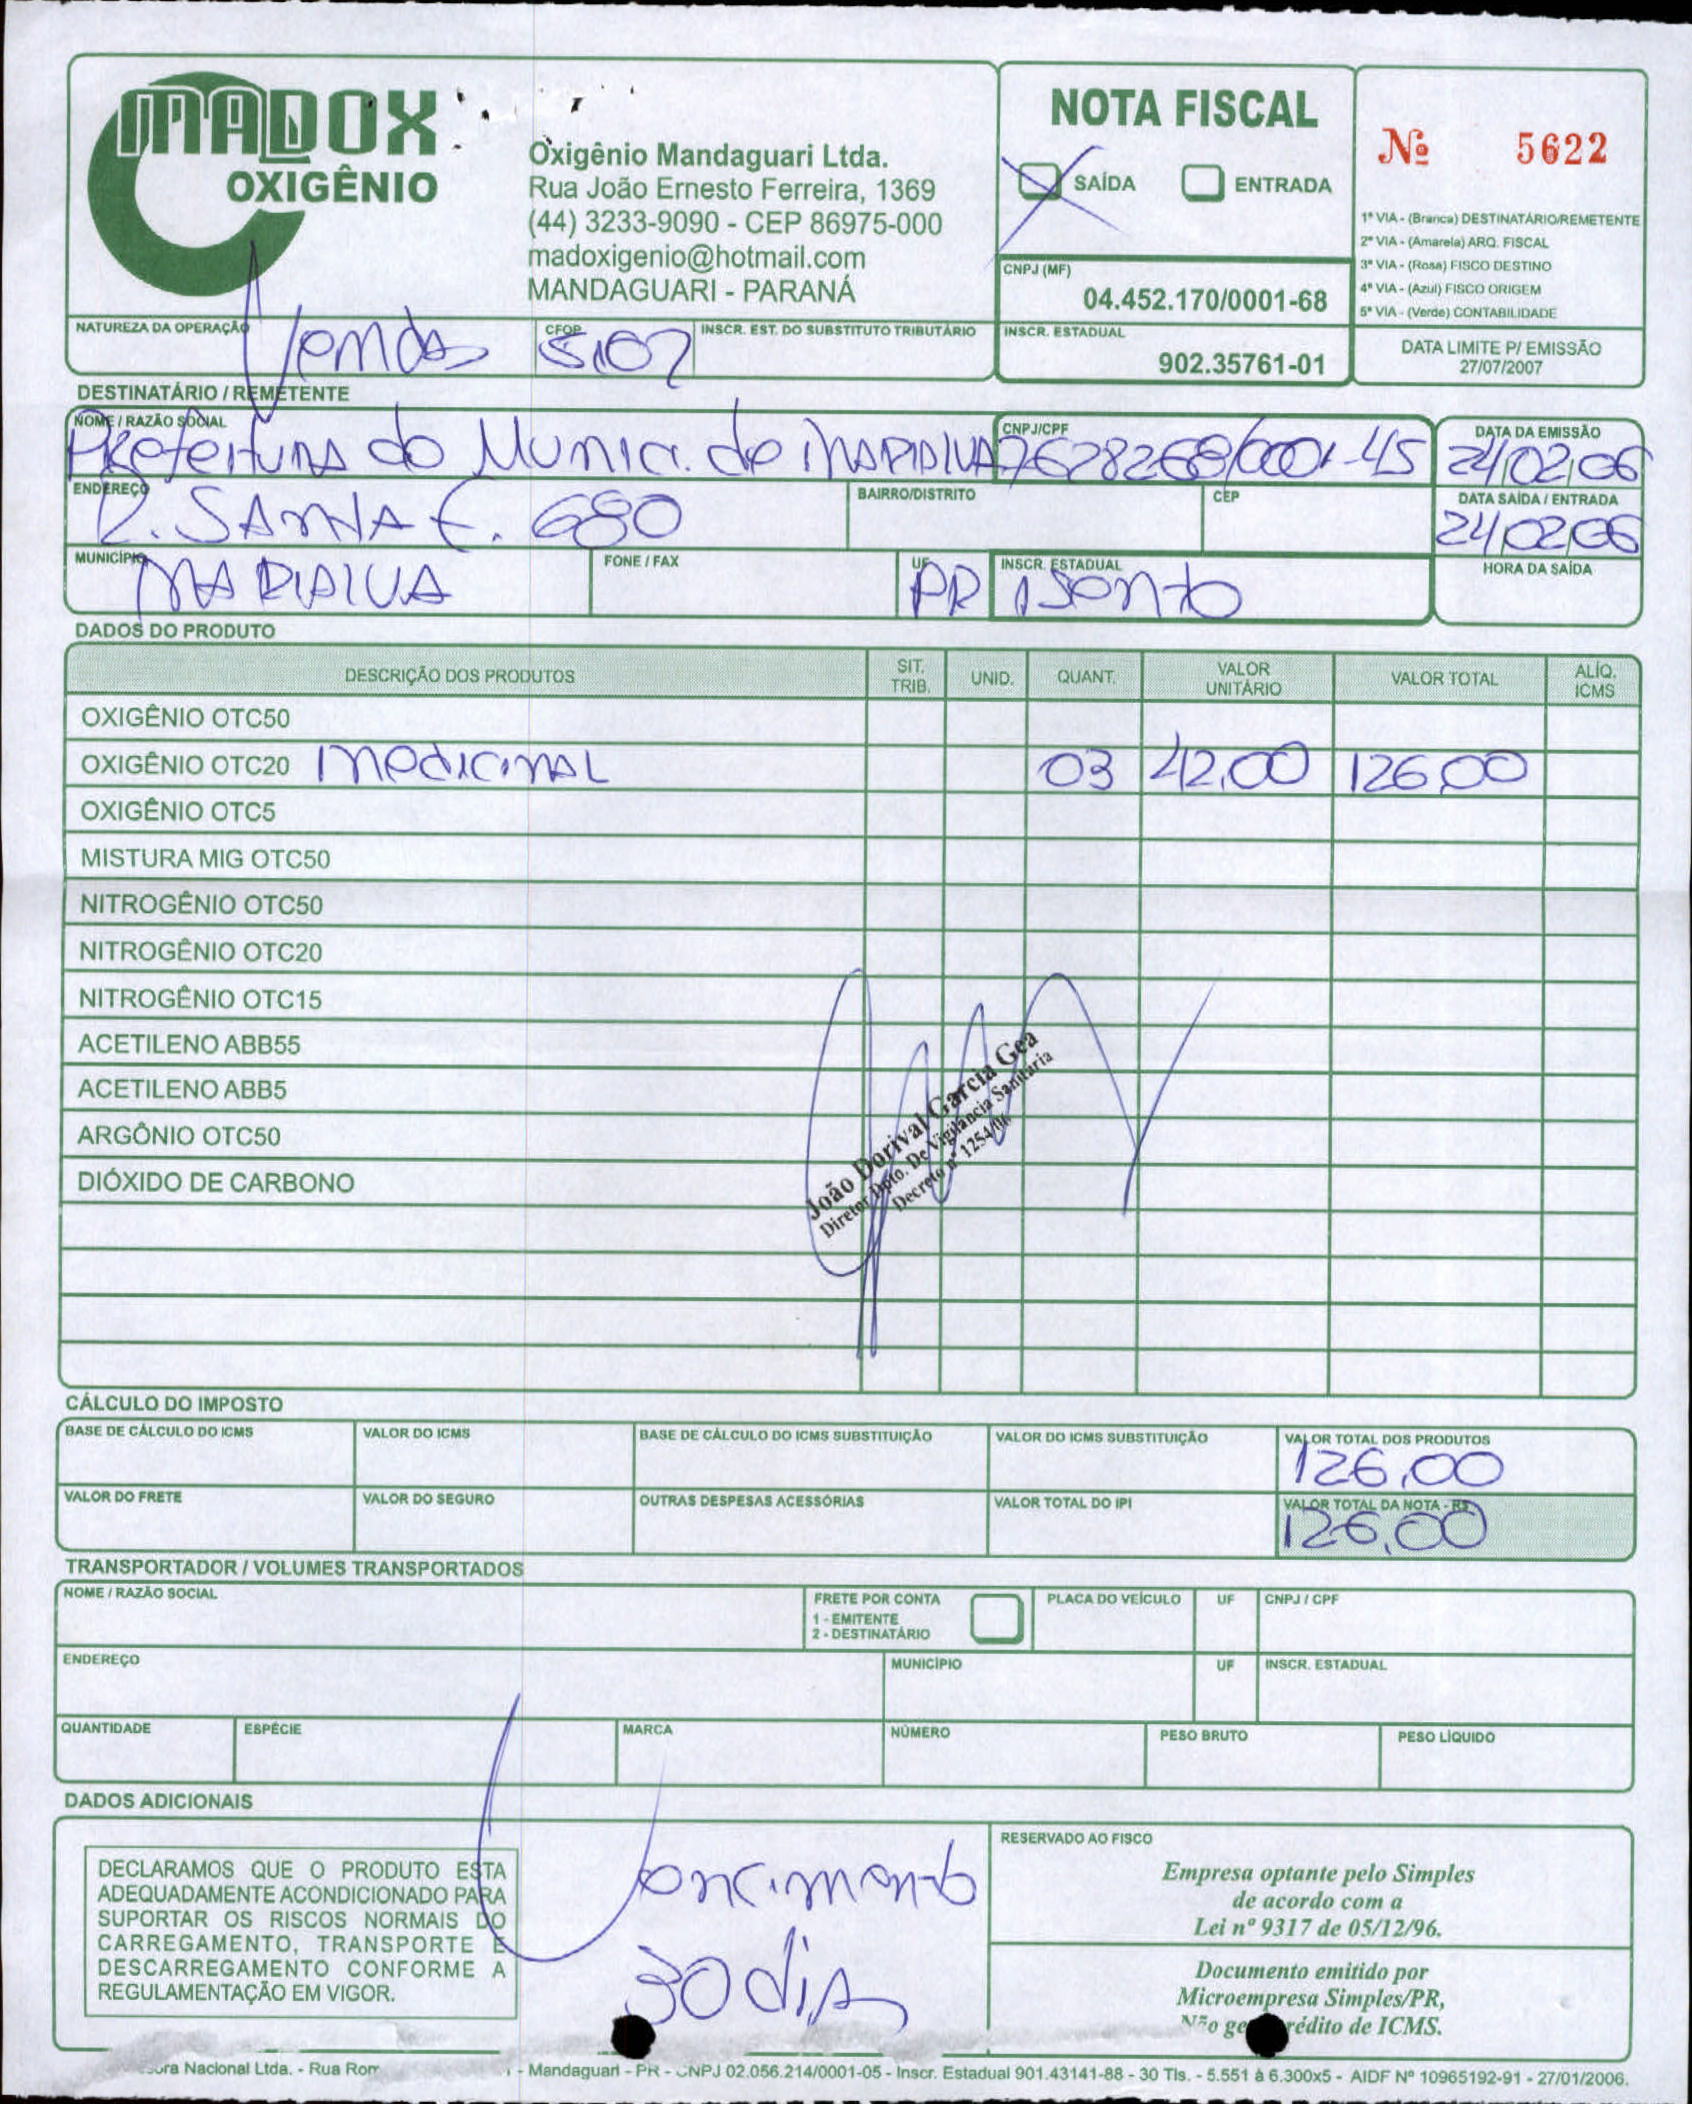 MADOX
OXIGÊNIO
Oxigênio Mandaguari Ltda.
Rua João Ernesto Ferreira, 1369
(44) 3233-9090 - CEP 86975-000
madoxigenio@hotmail.com
MANDAGUARI - PARANÁ
NOTA FISCAL
SAÍDA ENTRADA
CNPJ (MF)
04.452.170/0001-68
INSCR. ESTADUAL
902.35761-01
Nº 5622
1ª VIA - (Branca) DESTINATÁRIO/REMETENTE
2ª VIA - (Amarela) ARQ. FISCAL
3ª VIA - (Rosa) FISCO DESTINO
4ª VIA - (Azul) FISCO ORIGEM
5ª VIA - (Verde) CONTABILIDADE
DATA LIMITE P/ EMISSÃO
27/07/2007
NATUREZA DA OPERAÇÃO CFOP INSCR. EST. DO SUBSTITUTO TRIBUTÁRIO
Vendas 5102
DESTINATÁRIO / REMETENTE
NOME / RAZÃO SOCIAL CNPJ/CPF DATA DA EMISSÃO
Prefeitura do Munic. de MARIALVA 76282680/0001-45 24/02/06
ENDEREÇO BAIRRO/DISTRITO CEP DATA SAÍDA / ENTRADA
R. SANTA E. 680 24/02/06
MUNICÍPIO FONE / FAX UF INSCR. ESTADUAL HORA DA SAÍDA
MARIALVA PR isento
DADOS DO PRODUTO
DESCRIÇÃO DOS PRODUTOS SIT. TRIB. UNID. QUANT. VALOR UNITÁRIO VALOR TOTAL ALÍQ. ICMS
OXIGÊNIO OTC50
OXIGÊNIO OTC20 medicinal 03 42,00 126,00
OXIGÊNIO OTC5
MISTURA MIG OTC50
NITROGÊNIO OTC50
NITROGÊNIO OTC20
NITROGÊNIO OTC15
ACETILENO ABB55
ACETILENO ABB5
ARGÔNIO OTC50
DIÓXIDO DE CARBONO
João Dorival Garcia Gea
Diretor Dpto. De Vigilância Sanitária
Decreto nº 1254/06
CÁLCULO DO IMPOSTO
BASE DE CÁLCULO DO ICMS VALOR DO ICMS BASE DE CÁLCULO DO ICMS SUBSTITUIÇÃO VALOR DO ICMS SUBSTITUIÇÃO VALOR TOTAL DOS PRODUTOS
126,00
VALOR DO FRETE VALOR DO SEGURO OUTRAS DESPESAS ACESSÓRIAS VALOR TOTAL DO IPI VALOR TOTAL DA NOTA - R$
126,00
TRANSPORTADOR / VOLUMES TRANSPORTADOS
NOME / RAZÃO SOCIAL FRETE POR CONTA PLACA DO VEÍCULO UF CNPJ / CPF
1 - EMITENTE
2 - DESTINATÁRIO
ENDEREÇO MUNICÍPIO UF INSCR. ESTADUAL
QUANTIDADE ESPÉCIE MARCA NÚMERO PESO BRUTO PESO LÍQUIDO
DADOS ADICIONAIS
DECLARAMOS QUE O PRODUTO ESTA
ADEQUADAMENTE ACONDICIONADO PARA
SUPORTAR OS RISCOS NORMAIS DO
CARREGAMENTO, TRANSPORTE E
DESCARREGAMENTO CONFORME A
REGULAMENTAÇÃO EM VIGOR.
Vencimento
30 dias
RESERVADO AO FISCO
Empresa optante pelo Simples
de acordo com a
Lei nº 9317 de 05/12/96.
Documento emitido por
Microempresa Simples/PR,
Não crédito de ICMS.
Nacional Ltda. - Rua - Mandaguari - PR - CNPJ 02.056.214/0001-05 - Inscr. Estadual 901.43141-88 - 30 Tls. - 5.551 à 6.300x5 - AIDF Nº 10965192-91 - 27/01/2006.